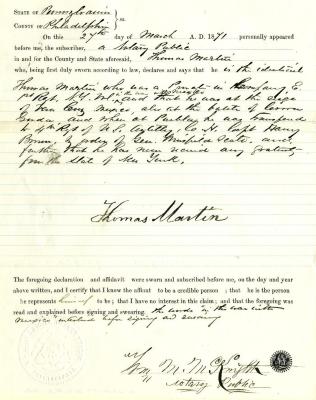 STATE OF Pennsylvania
COUNTY OF Philadelphia } SS.
On this 27th day of March A. D. 1871 personally appeared
before me, the subscriber, a Notary Public
in and for the County and State aforesaid, Thomas Martin
who, being first duly sworn according to law, declares and says that he is the identical
Thomas Martin who was a Private in Company E
1st Regt. N.Y. and that he was at the siege
of Vera Cruz Mexico, also in the battle of Cerro
Gordo, and when at Puebla he was transferred
to 4th Regt of U.S. Artillery, Co. H. Capt
by order of Gen. Winfield Scott, and
further that he has never received any gratuity
from the State of New York.
Thomas Martin
The foregoing declaration and affidavit were sworn and subscribed before me, on the day and year
above written, and I certify that I know the affiant to be a credible person ; that he is the person
he represents himself to be; that I have no interest in this claim; and that the foregoing was
read and explained before signing and swearing. the words "in the war with
Mexico" interlined before signing and swearing
Wm. M. McKnight
Notary Public